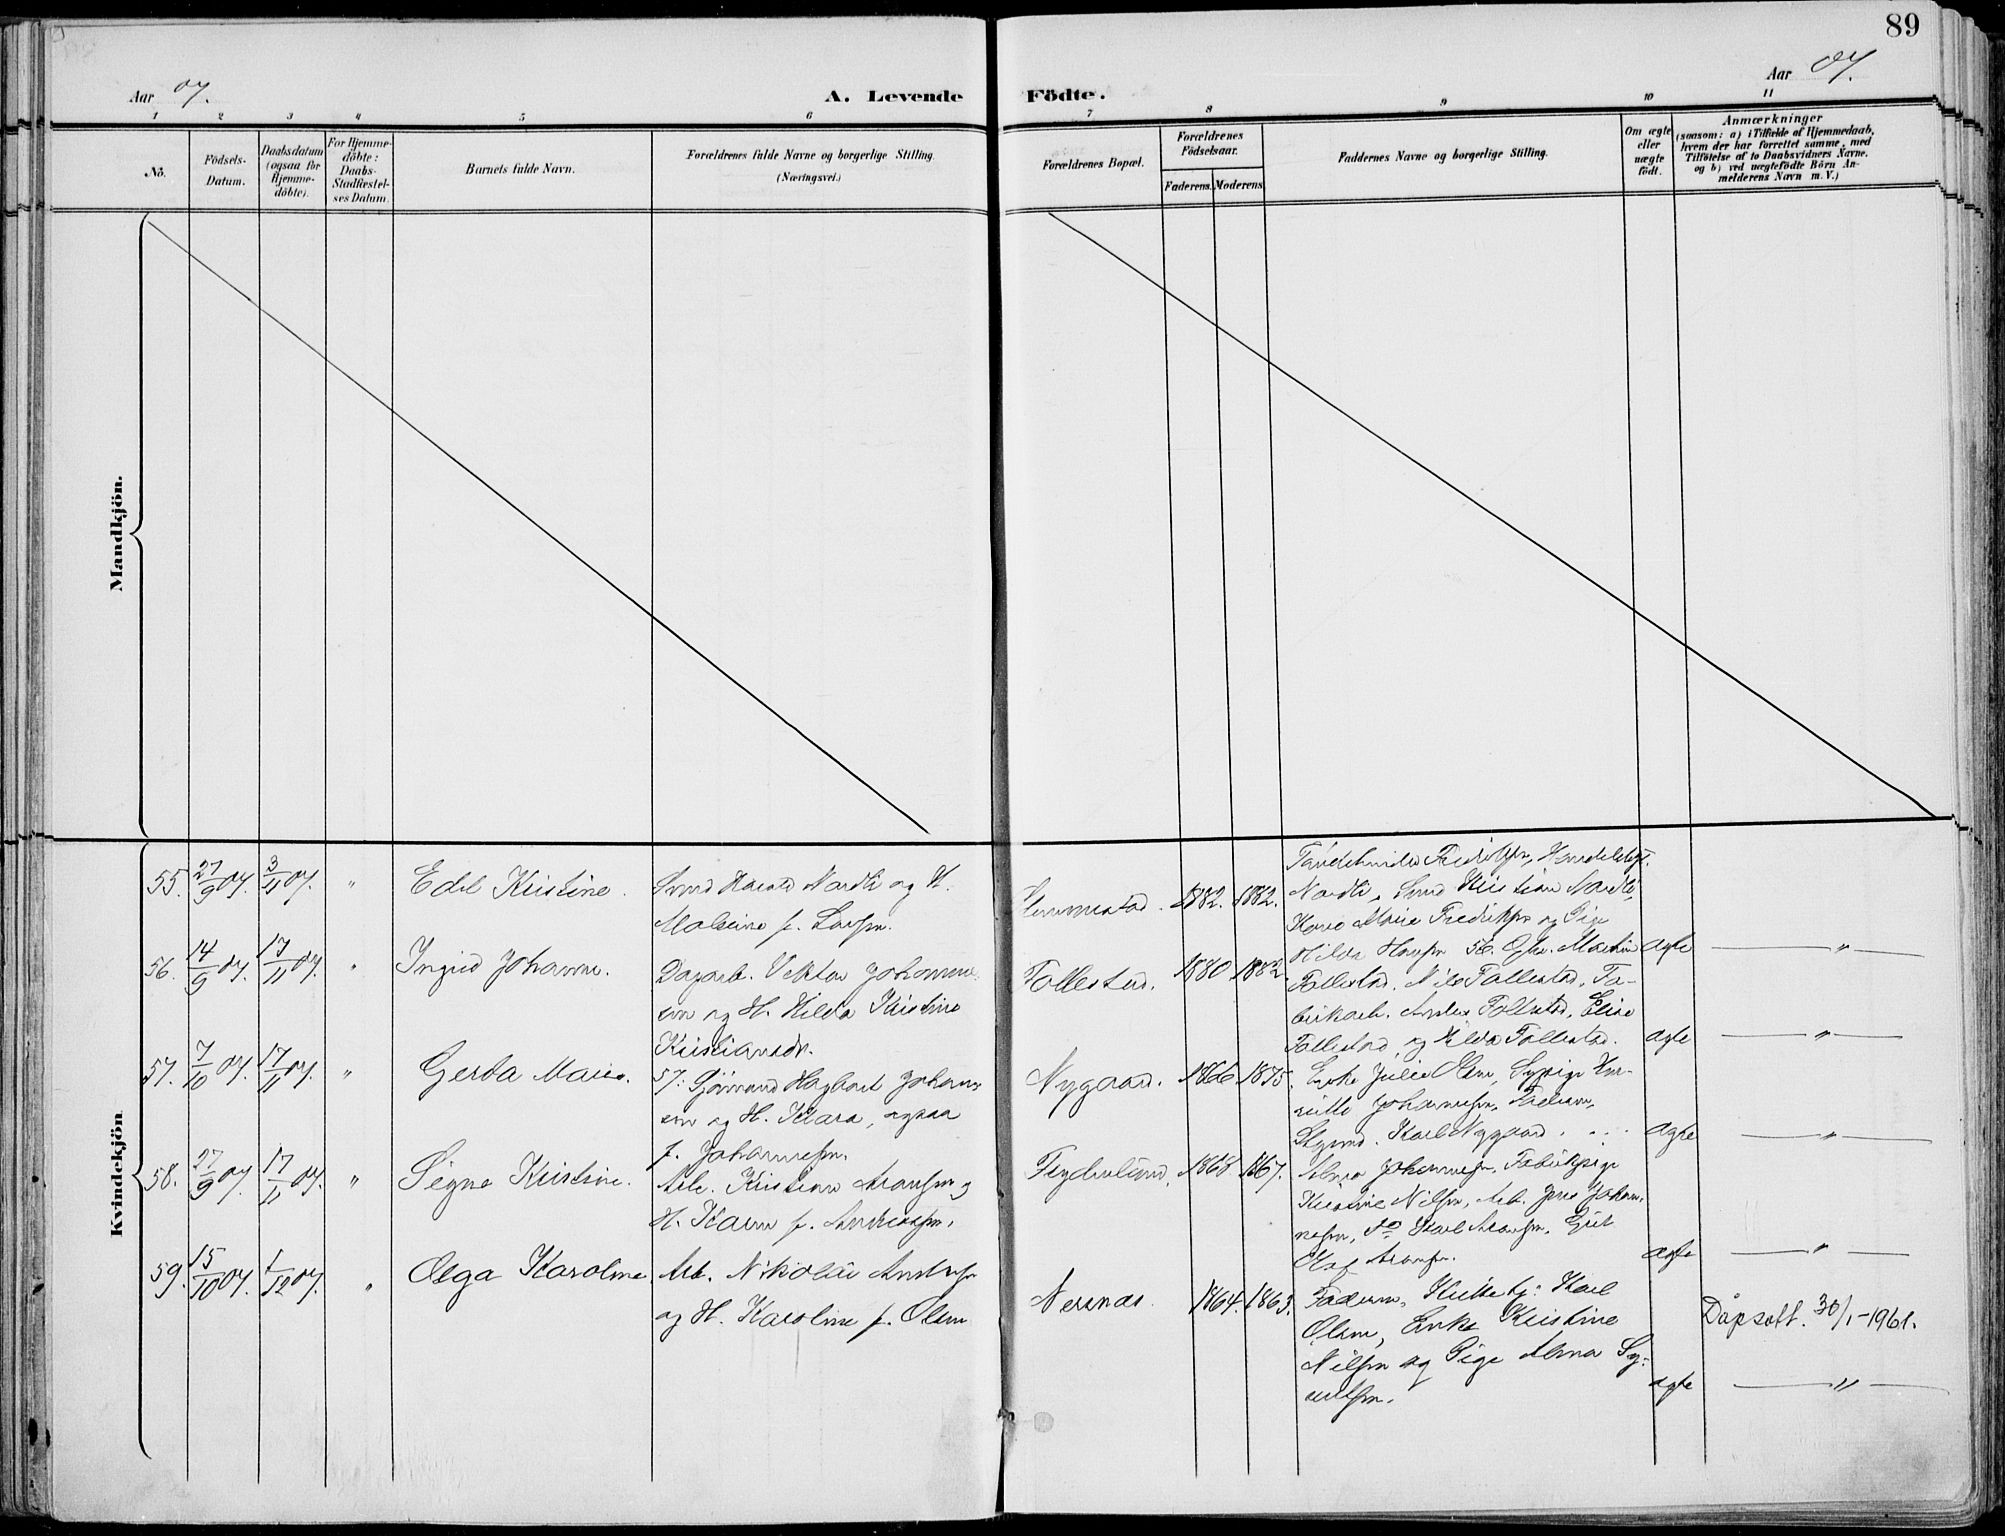 89
Aar 07.
A. Levende
Födte.
Aar 07.
1 2 3 4 5 6 7 8 9 10 11
No.
Födsels-
Datum.
Daabsdatum
(ogsaa for
Hjemme-
döbte).
For Hjemme-
döbte:
Daabs-
Stadfæstel-
ses Datum.
Barnets fulde Navn.
Forældrenes fulde Navne og borgerlige Stilling.
(Næringsvei.)
Forældrenes Bopæl.
Forældrenes
Födselsaar.
Faderens. Moderens.
Faddernes Navne og borgerlige Stilling.
Om ægte
eller
uægte
födt.
Anmærkninger
(saasom: a) i Tilfælde af Hjemmedaab,
hvem der har forrettet samme, med
Tilföielse af to Daabsvidners Navne,
og b) ved uægtefödte Börn An-
melderens Navn m. V.)
Mandkjön.
Kvindekjön
55. 27/9 07. 3/11 07. " Edel Kristine.
Svend Harald Nordli og H.
f. Larsen.
1882. 1882.
Nordli, Svend Kristian Nordli,
Marie Fredriksen og Pige
Hilda Hansen
ægte — " —
56. 14/9 07. 17/11 07. " Ingrid Johanne.
Dagarb. Viktor Johannes-
sen og H. Hilda Kristine
Kristiansdr.
Follestad. 1880 1882.
56. Gbr. Martin
Follestad, Nils Follestad, Fa-
brikarb. Follestad, Elise
Follestad og Hilda Follestad.
ægte — " —
57. 7/10 07. 17/11 07. " Gerda Marie.
57: Gjörmand Hagbart Johannes-
sen og H. Klara, ogsaa
f. Johannessen.
Nygaard. 1866 1875.
Enke Julie Olsen, Sypige Hen-
riette Johannessen, Faderen,
Styrmd. Karl Nygaard.
ægte — " —
58. 27/9 07. 17/11 07. " Signe Kristine.
Arb. Kristian Aronsen og
H. Karen f. Andreassen.
1868 1867.
Johannessen, Fabrikpige
Kristine Nilsen, Arb. Jens Johan-
nessen, Do Karl Aronsen, Gut
Olaf Aronsen.
ægte — " —
59. 15/10 07. 1/12 07. " Olga Karoline
Arb. Nikolai Andersen
og H. Karoline f. Olsen
Nersnes. 1864. 1863.
Faderen, Karl
Olsen, Enke Kristine
Nilsen og Pige Anna Sy-
vertsen.
ægte — " —
Dåpsatt. 30/1-1961.